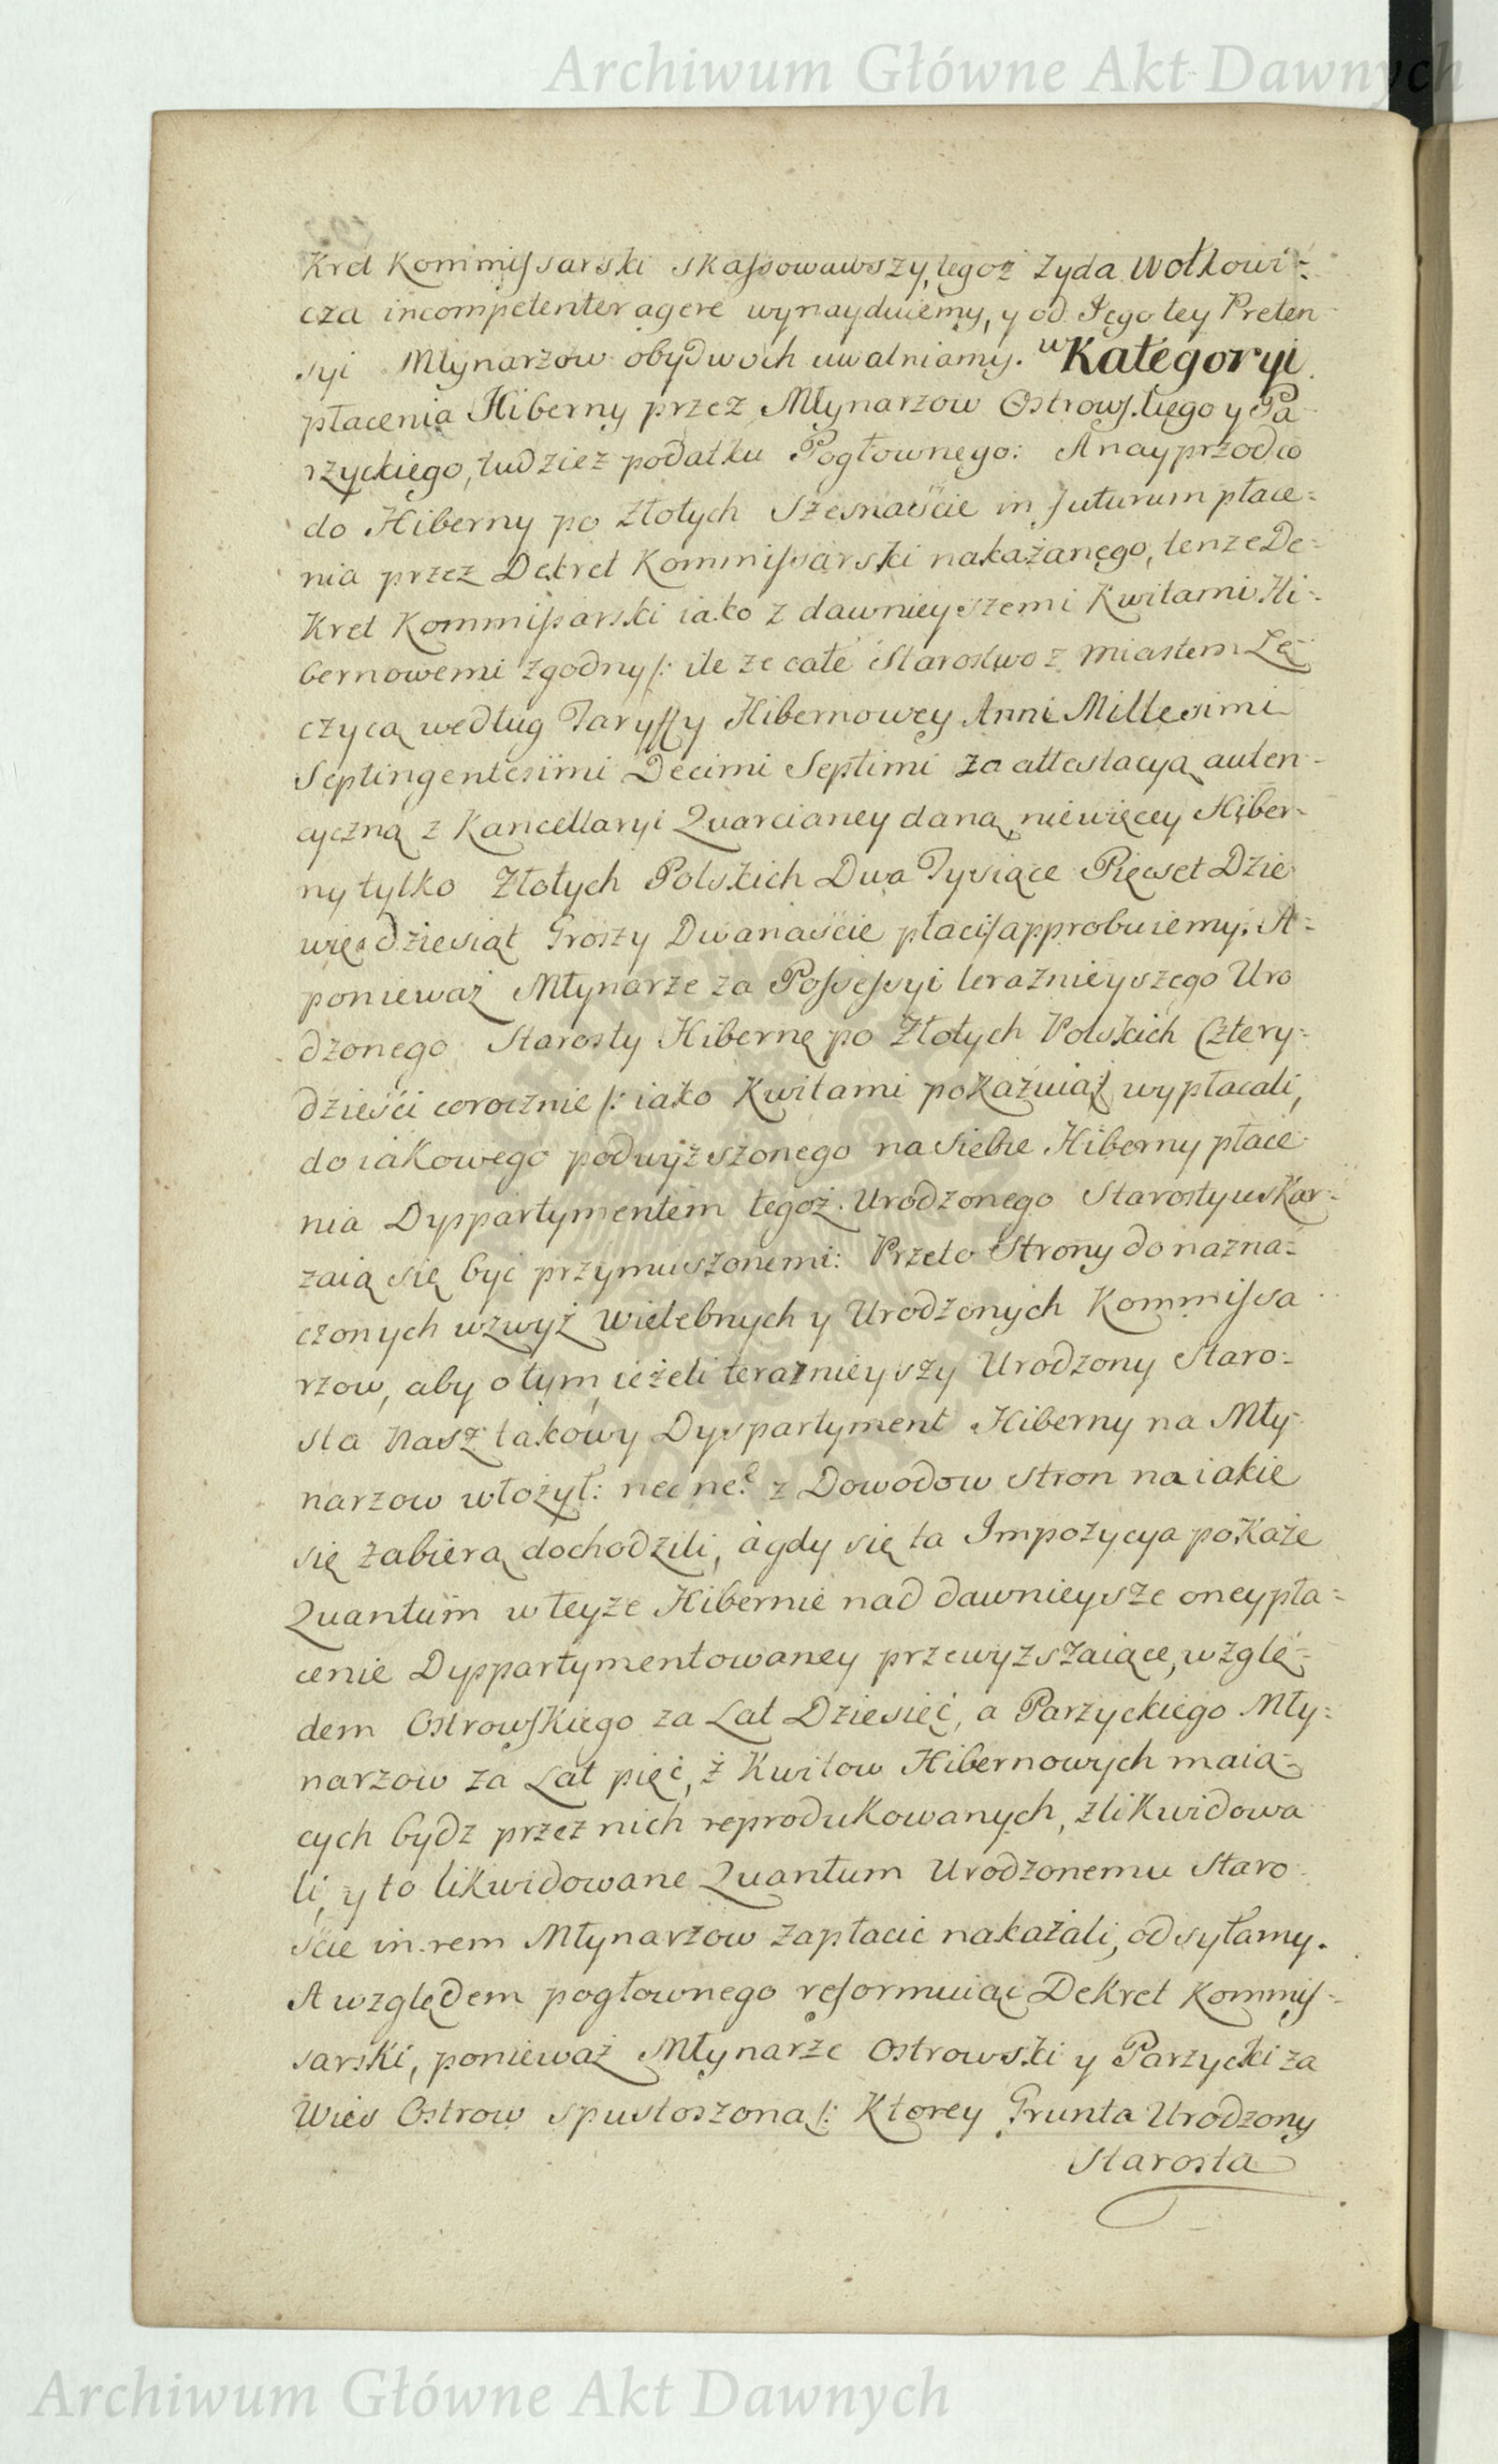 Archiwum Główne Akt Dawnych
Kret Kommissarski skassowawszy, tegoż Zyda Wołkowi=
cza incompetenter agere wynayduiemy, y od Jego tey Preten
syi Młynarzow obydwoch uwalniamy. w Kategoryi
płacenia Hiberny przez Młynarzow Ostrowskiego y Pa
rzyckiego, tudziez podatku Pogłownego: A nayprzod co
do Hiberny po Złotych Szesnaście in futurum płace=
nia przez Dekret Kommissarski nakazanego, tenze De=
Kret Kommissarski iako z dawnieyszemi Kwitami Hi=
bernowemi zgodny /: ile ze całe Starostwo z Miastem Łę=
czycą według Taryffy Hibernowey Anni Millesimi
Septingentesimi Decimi Septimi za attestacyą auten-
cyczną z Kancellaryi Quarcianey daną, niewięcey Hiber-
ny tylko Złotych Polskich Dwa Tysiące Pięcset Dzie
więdziesiąt Groszy Dwanaście płaci /approbuiemy. A=
ponieważ Młynarze za Possessyi teraznieyszego Uro
dzonego Starosty Hibernę po Złotych Polskich Cztery=
dzieści corocznie /: iako Kwitami pokazuią/ wypłacali,
do iakowego podwyższonego na siebie Hiberny płace
nia Dyppartymentem tegoż Urodzonego Starosty uskar=
zaią się być przymuszonemi: Przeto Strony do nazna=
czonych wzwyż Wielebnych y Urodzonych Kommissa
rzow, aby o tym, ieżeli teraznieyszy Urodzony Staro=
sta Nasz takowy Dyspartyment Hiberny na Mły
narzow włożył: nec ne? z Dowodow stron na iakie
się zabierą dochodzili, a gdy się ta Impozycya pokaże
Quantum w teyze Hibernie nad dawnieysze oney pła=
cenie Dyppartymentowaney przewyzszaiące, wzglę=
dem Ostrowskiego za Lat Dziesięć, a Parzyckiego Mły=
narzow za Lat pięć, z Kwitow Hibernowych maią=
cych bydz przez nich reprodukowanych, zlikwidowa
li, y to likwidowane Quantum Urodzonemu Staro
ście in rem Młynarzow zapłacić nakazali, odsyłamy.
A względem pogłownego reformuiąc Dekret Kommis=
sarski, ponieważ Młynarze Ostrowski y Parzycki za
Wieś Ostrow spustoszoną /: Ktorey Grunta Urodzony
Starosta
Archiwum Główne Akt Dawnych